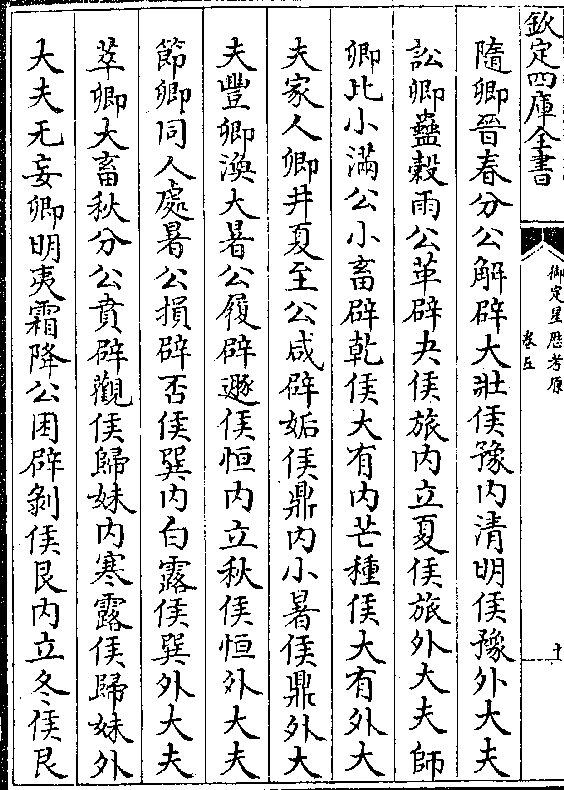 欽定四庫全書
御定星厯考原
卷五
十
隨卿晉春分公解辟大壯侯豫内清明侯豫外大夫
訟卿蠱穀雨公革辟夬侯旅内立夏侯旅外大夫師
卿比小滿公小畜辟乾侯大有内芒種侯大有外大
夫家人卿井夏至公咸辟姤侯鼎内小暑侯鼎外大
夫豐卿渙大暑公履辟遯侯恒内立秋侯恒外大夫
節卿同人處暑公損辟否侯巽内白露侯巽外大夫
萃卿大畜秋分公賁辟觀侯歸妹内寒露侯歸妹外
大夫无妄卿明夷霜降公困辟剝侯艮内立冬侯艮